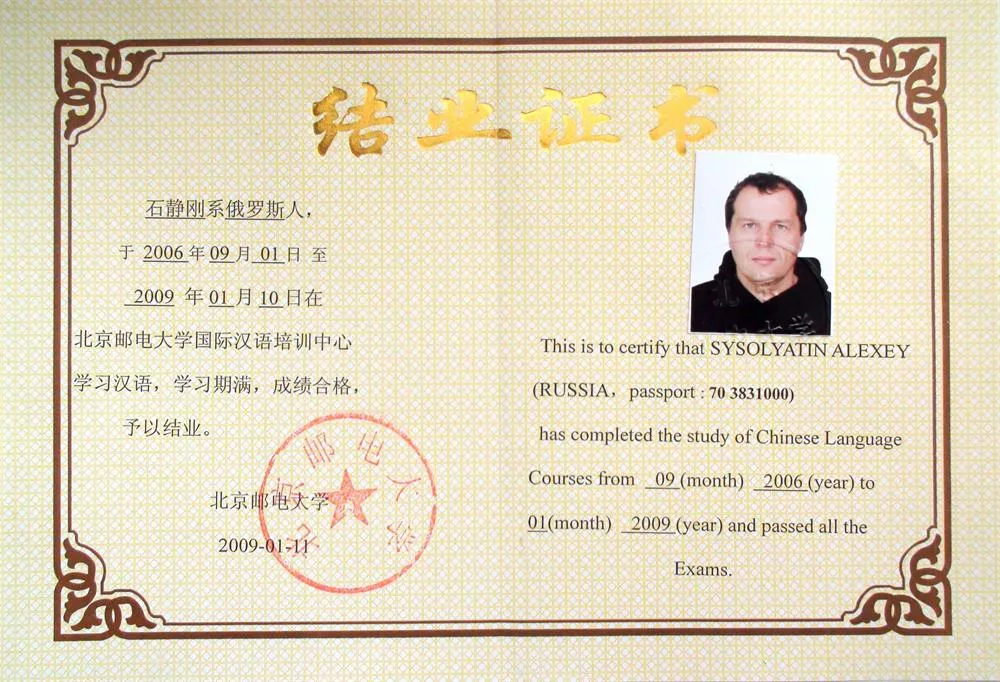 结业证书
石静刚系俄罗斯人，
于 2006 年 09 月 01 日 至
2009 年 01 月 10 日在
北京邮电大学国际汉语培训中心
学习汉语，学习期满，成绩合格，
予以结业。
北京邮电大学
2009-01-11
北京邮电大学
This is to certify that SYSOLYATIN ALEXEY
(RUSSIA，passport : 70 3831000)
has completed the study of Chinese Language
Courses from 09 (month) 2006 (year) to
01(month) 2009 (year) and passed all the
Exams.